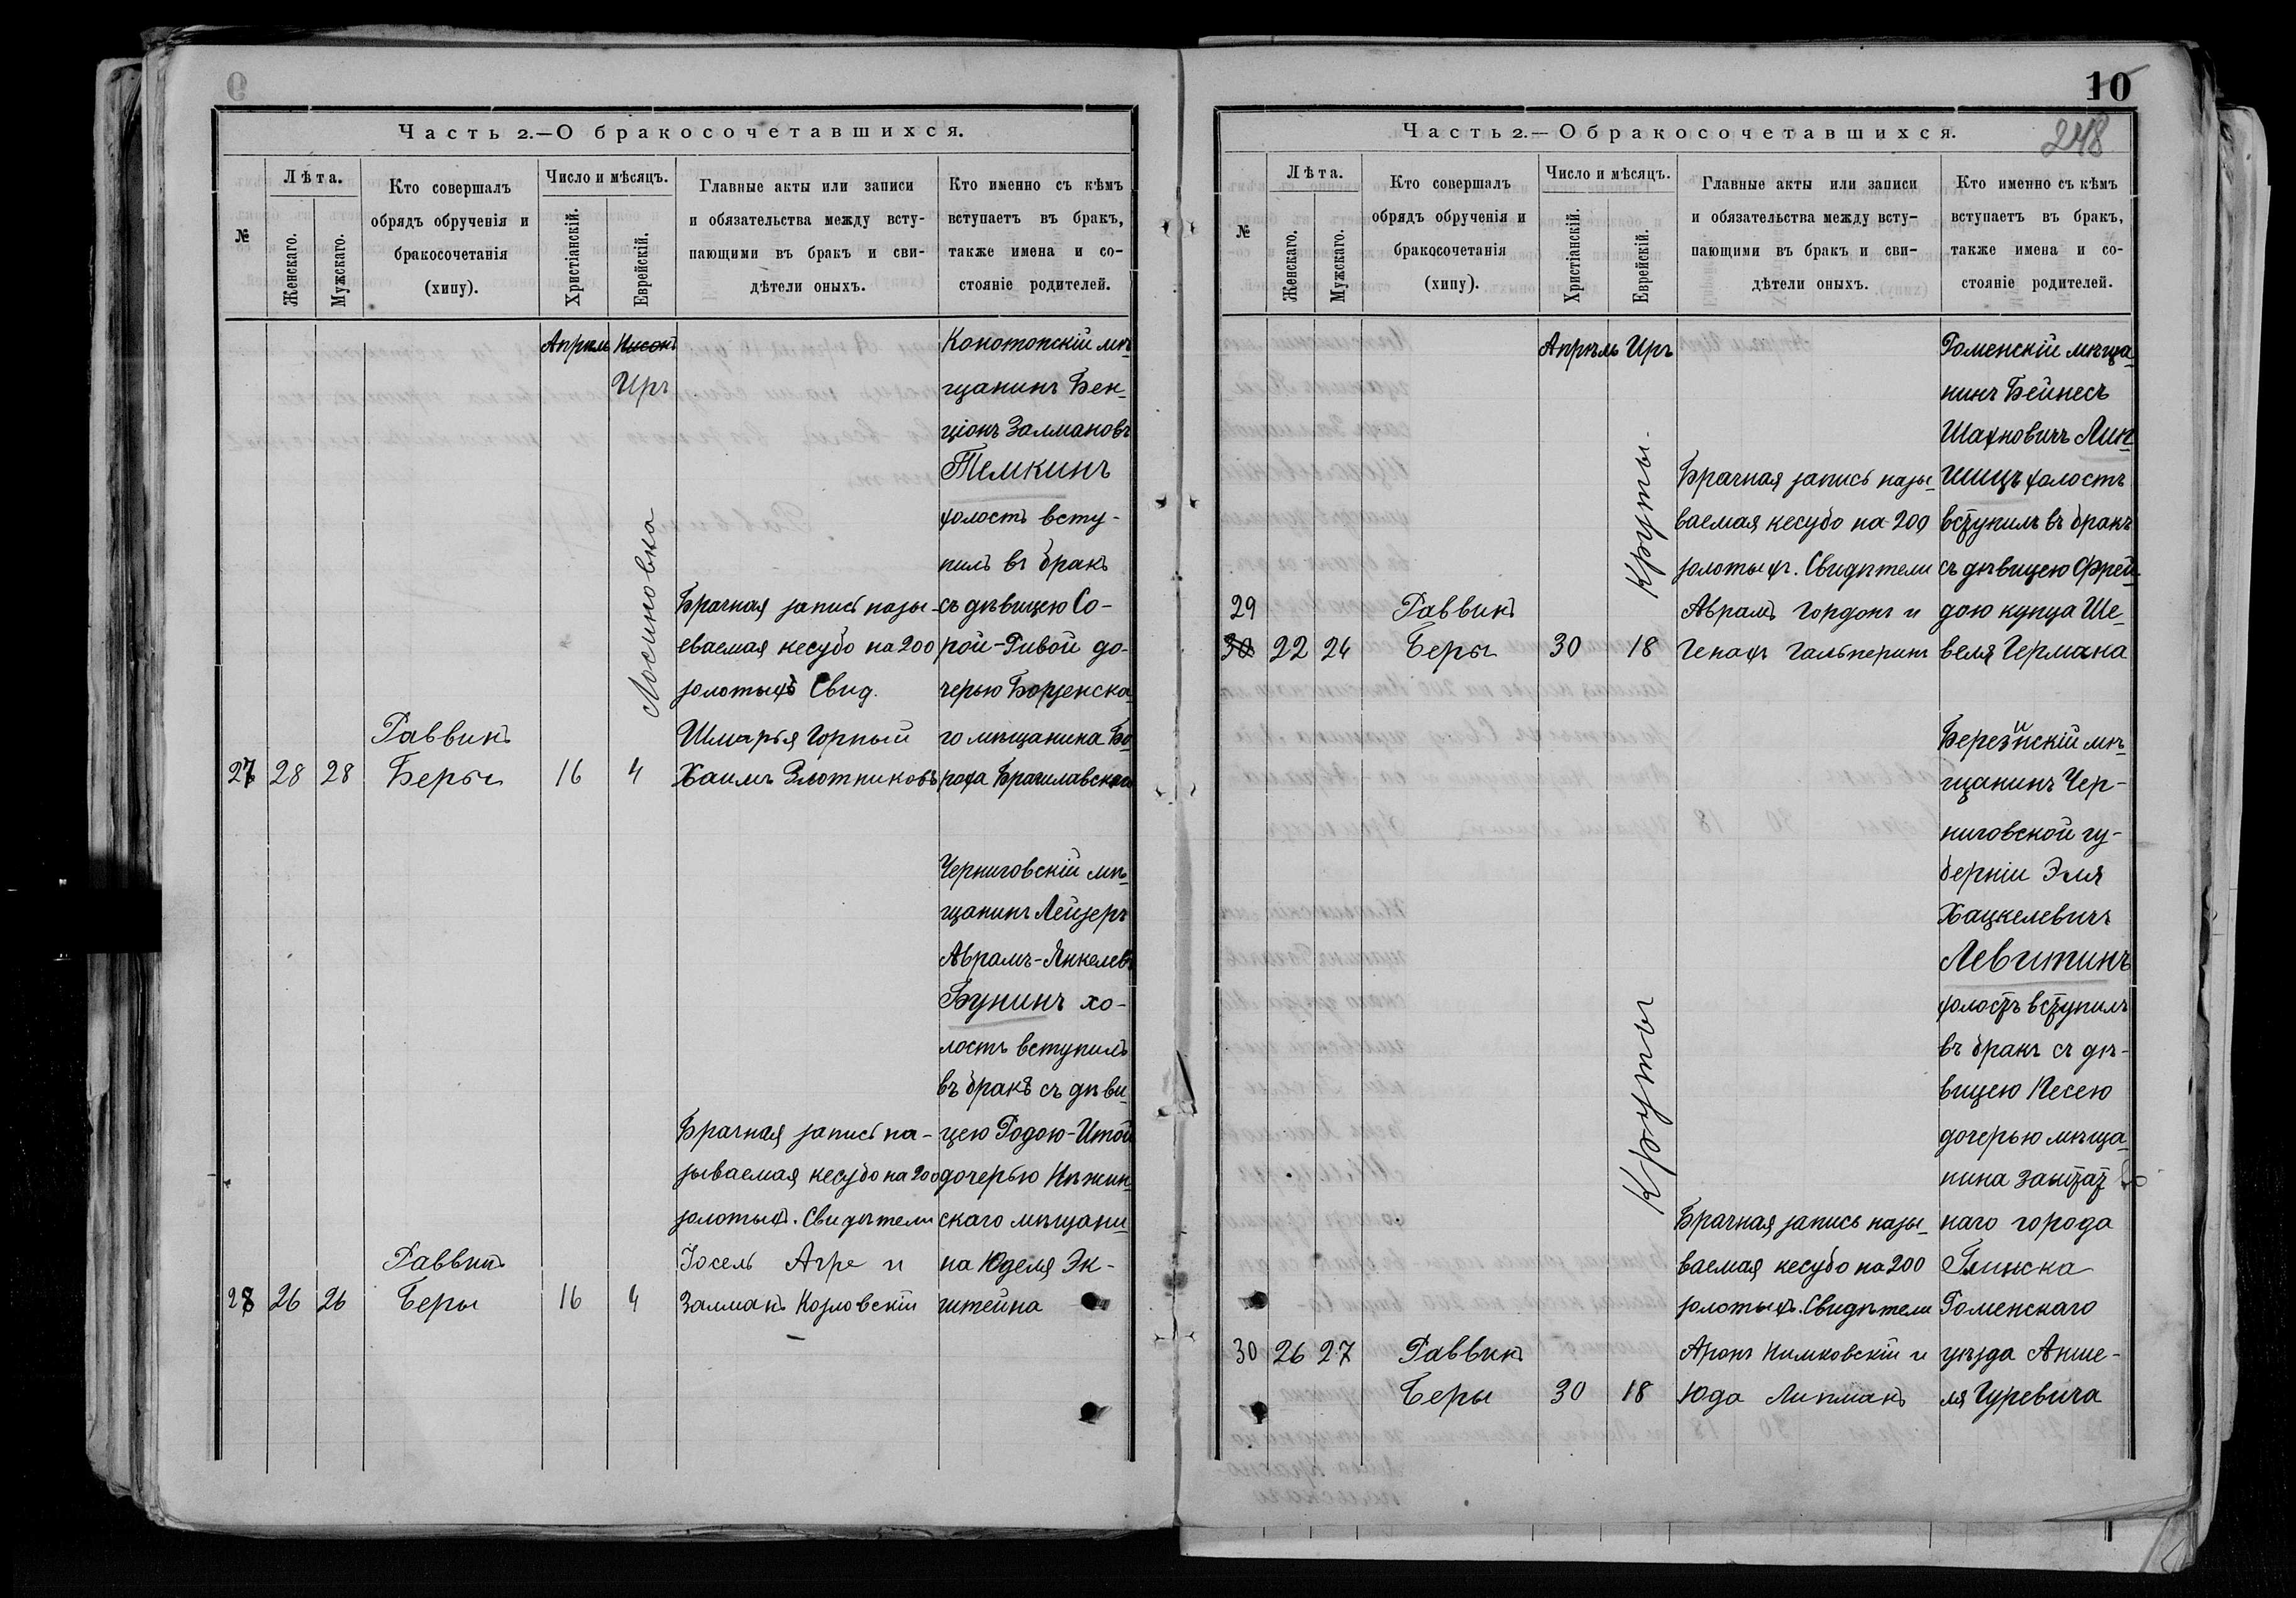 Часть 2.—О бракосочетавшихся.
№
Лѣта.
Женскаго.
Мужскаго.
Кто совершалъ
обрядъ обрученія и
бракосочетанія
(хипу).
Число и мѣсяцъ.
Христіанскій.
Еврейскій.
Главные акты или записи
и обязательства между всту-
пающими въ бракъ и сви-
дѣтели оныхъ.
Кто именно съ кѣмъ
вступаетъ въ бракъ,
также имена и со-
стояніе родителей.
Апрѣль
Нисонъ
Иръ
Лосиновка
27 28 28
Раввинъ
Беры
16 4
Брачная запись назы-
еваемая кесубо на 200
золотыхъ Свид.
Шмарья Горный
Хаимъ Злотниковъ
Конотопскій мѣ-
щанинъ Бен-
ціонъ Залмановъ
Темкинъ
холостъ всту-
пилъ въ бракъ
съ дѣвицею Со-
рой-Ривой до-
черью Борзенска
го мѣщанина Бо
роха Брагилавскаго
28 26 26
Раввинъ
Беры
16 4
Брачная запись на-
зываемая кесубо на 200
золотыхъ. Свидѣтели
Іосель Агре и
Залманъ Козловскій
Черниговскій мѣ-
щанинъ Лейзеръ
Аврамъ-Янкелевъ
Бунинъ хо-
лостъ вступилъ
въ бракъ съ дѣви-
цею Родою-Итой
дочерью Нѣжин-
скаго мѣщани-
на Юделя Эк-
штейна
10
248
Часть 2.—О бракосочетавшихся.
№
Лѣта.
Женскаго.
Мужскаго.
Кто совершалъ
обрядъ обрученія и
бракосочетанія
(хипу).
Число и мѣсяцъ.
Христіанскій.
Еврейскій.
Главные акты или записи
и обязательства между всту-
пающими въ бракъ и сви-
дѣтели оныхъ.
Кто именно съ кѣмъ
вступаетъ въ бракъ,
также имена и со-
стояніе родителей.
Апрѣль Иръ
Круты.
29
30 22 24
Раввинъ
Беры
30 18
Брачная запись назы-
ваемая кесубо на 200
золотыхъ. Свидѣтели
Аврамъ Гордонъ и
Генахъ Гальперинъ
Роменскій мѣща-
нинъ Бейнесъ
Шахновичъ Лип-
шицъ холостъ
вступилъ въ бракъ
съ дѣвицею Фрей-
дою купца Ше-
веля Германа
Круты
30 26 27
Раввинъ
Беры
30 18
Брачная запись назы-
ваемая кесубо на 200
золотыхъ. Свидѣтели
Аронъ Нимковскій и
Юда Липманъ
Березнскій мѣ-
щанинъ Чер-
ниговской гу-
берніи Эля
Хацкелевичъ
Левитинъ
холостъ вступилъ
въ бракъ съ дѣ-
вицею Песею
дочерью мѣща-
нина заштат
наго города
Глинска
Роменскаго
уѣзда Анше-
ля Гуревича